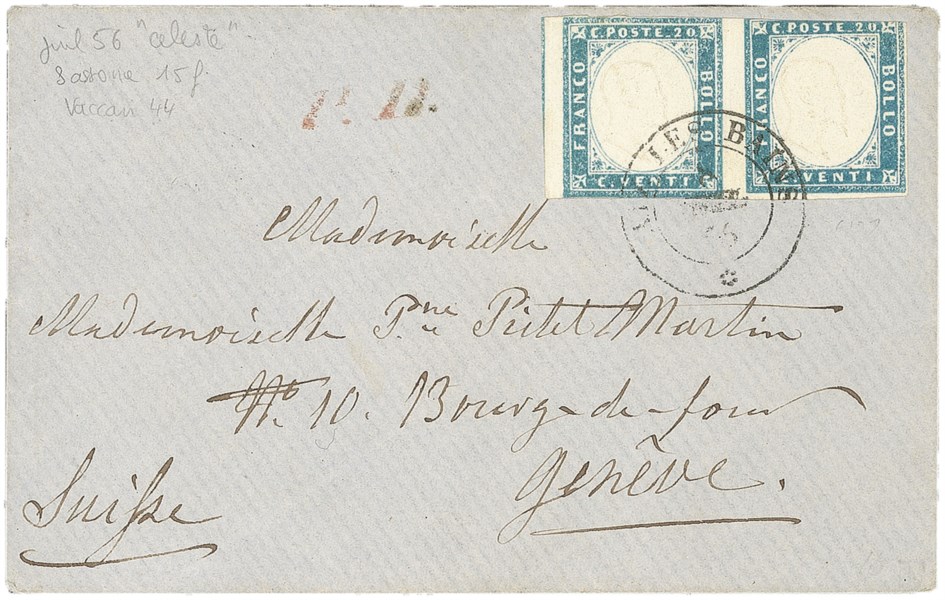 juil 56 "celeste"
Sassone 15f.
Vaccari 44
P. D.
C. POSTE 20
FRANCO
BOLLO
C. VENTI
C. POSTE 20
FRANCO
BOLLO
C. VENTI
LES BAINS
56
Mademoiselle
Mademoiselle Pne Pictet Martin
No. 10. Bourg-de-four
Genève.
Suisse